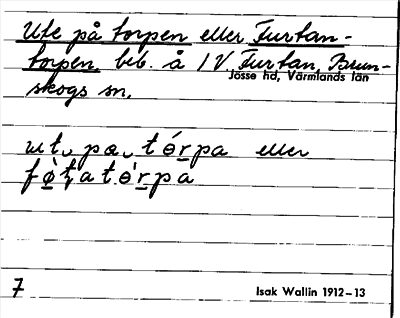 Ute på torpen eller Furtan-
torpen, beb. å 1 V. Furtan, Brun-
Jösse hd, Värmlands län
skogs sn.
ut‿ pa‿ tɵ́rpa eller
fɵ̀ʈatɵ̀rpa
7
Isak Wallin 1912–13